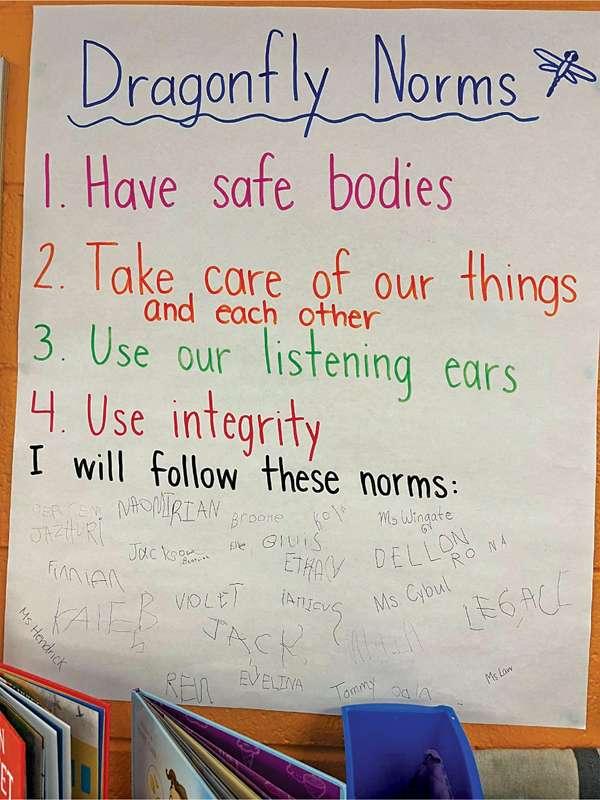 Dragonfly Norms
1. Have safe bodies
2. Take care of our things
and each other
3. Use our listening ears
4. Use integrity
I will follow these norms:
NAOMI RIAN Brooke Ms Wingate
JAZHURI
Jackson GIULIS ETHAN DELLON RONA
FINNIAN
KALEB VIOLET Ms Cybul LEGACI
Ms Hendrick JACK
Ms Law
REN EVELINA Tommy